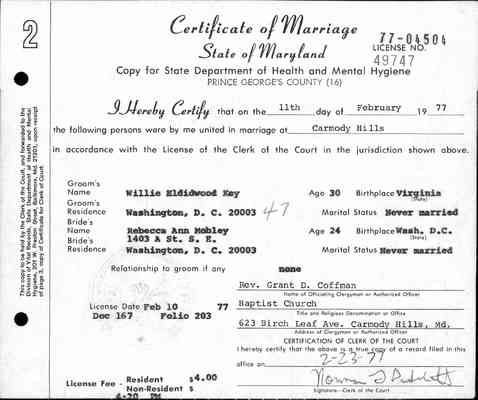 2
Certificate of Marriage
State of Maryland
77-04504
LICENSE NO.
49747
Copy for State Department of Health and Mental Hygiene
PRINCE GEORGE'S COUNTY (16)
I Hereby Certify that on the 11th day of February 19 77
the following persons were by me united in marriage at Carmody Hills
in accordance with the License of the Clerk of the Court in the jurisdiction shown above.
Groom's
Name Willie Eldidwood Key Age 30 Birthplace Virginia
(State)
Groom's
Residence Washington, D. C. 20003 47 Marital Status Never married
Bride's
Name Rebecca Ann Mobley Age 24 Birthplace Wash, D.C.
(State)
Bride's 1403 A St. S. E.
Residence Washington, D. C. 20003 Marital Status Never married
Relationship to groom if any none
Rev. Grant D. Coffman
Name of Officiating Clergyman or Authorized Officer
License Date Feb 10 77
Baptist Church
Dec 167 Folio 203
Title and Religious Denomination or Office
623 Birch Leaf Ave. Carmody Hills, Md.
Address of Clergyman or Authorized Officer
CERTIFICATION OF CLERK OF THE COURT
I hereby certify that the above is a true copy of a record filed in this
office on 2-23-77
License Fee - Resident $4.00
Non-Resident $
4-20 PM
Norman
Signature—Clerk of the Court
This copy to be held by the Clerk of the Court, and forwarded to the
Division of Vital Records, State Department of Health and Mental
Hygiene, 201 W. Preston Street, Baltimore, Md. 21201, upon receipt
of page 3, copy of Certificate for Clerk of Court.